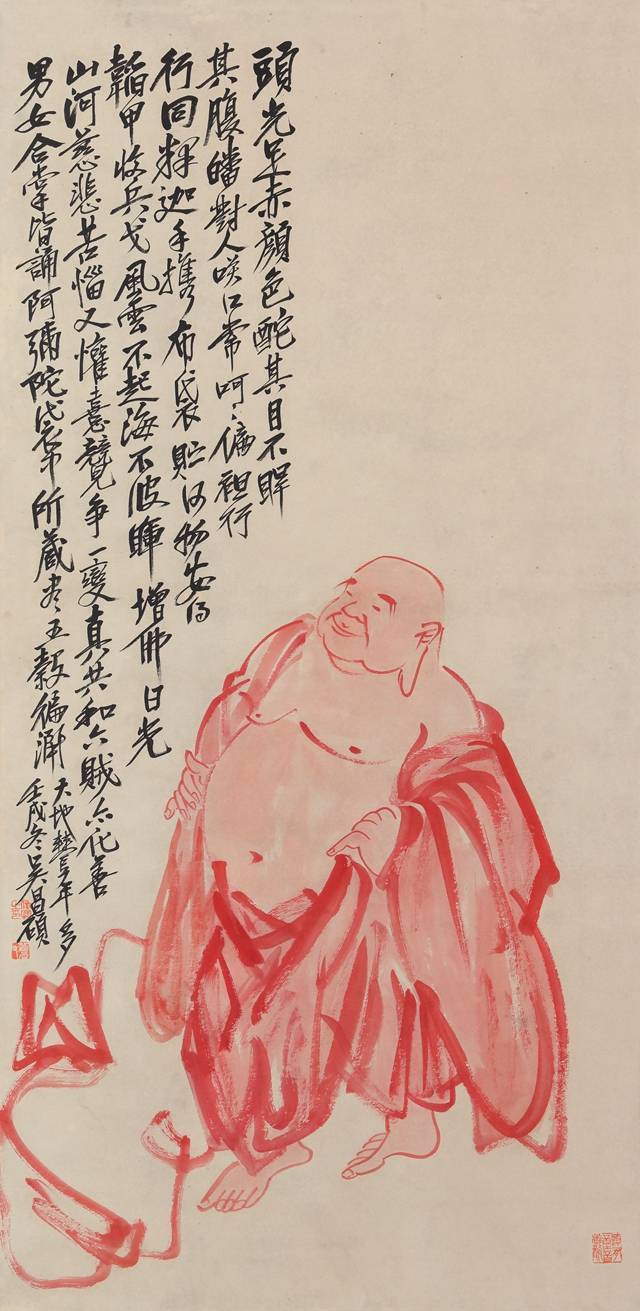 頭光足赤顏色酡其目不睅
其腹皤對人咲口常呵〻偏袒行
行同釋迦手攜布袋貯何物安得
韜甲收兵戈風雲不起海不波暉增佛日光
山河慈悲苦惱又懽喜競爭一變真共和六賊亦化善
男女合掌皆誦阿彌陀袋中所藏盡五穀徧
天地年多
壬戌冬吳昌碩